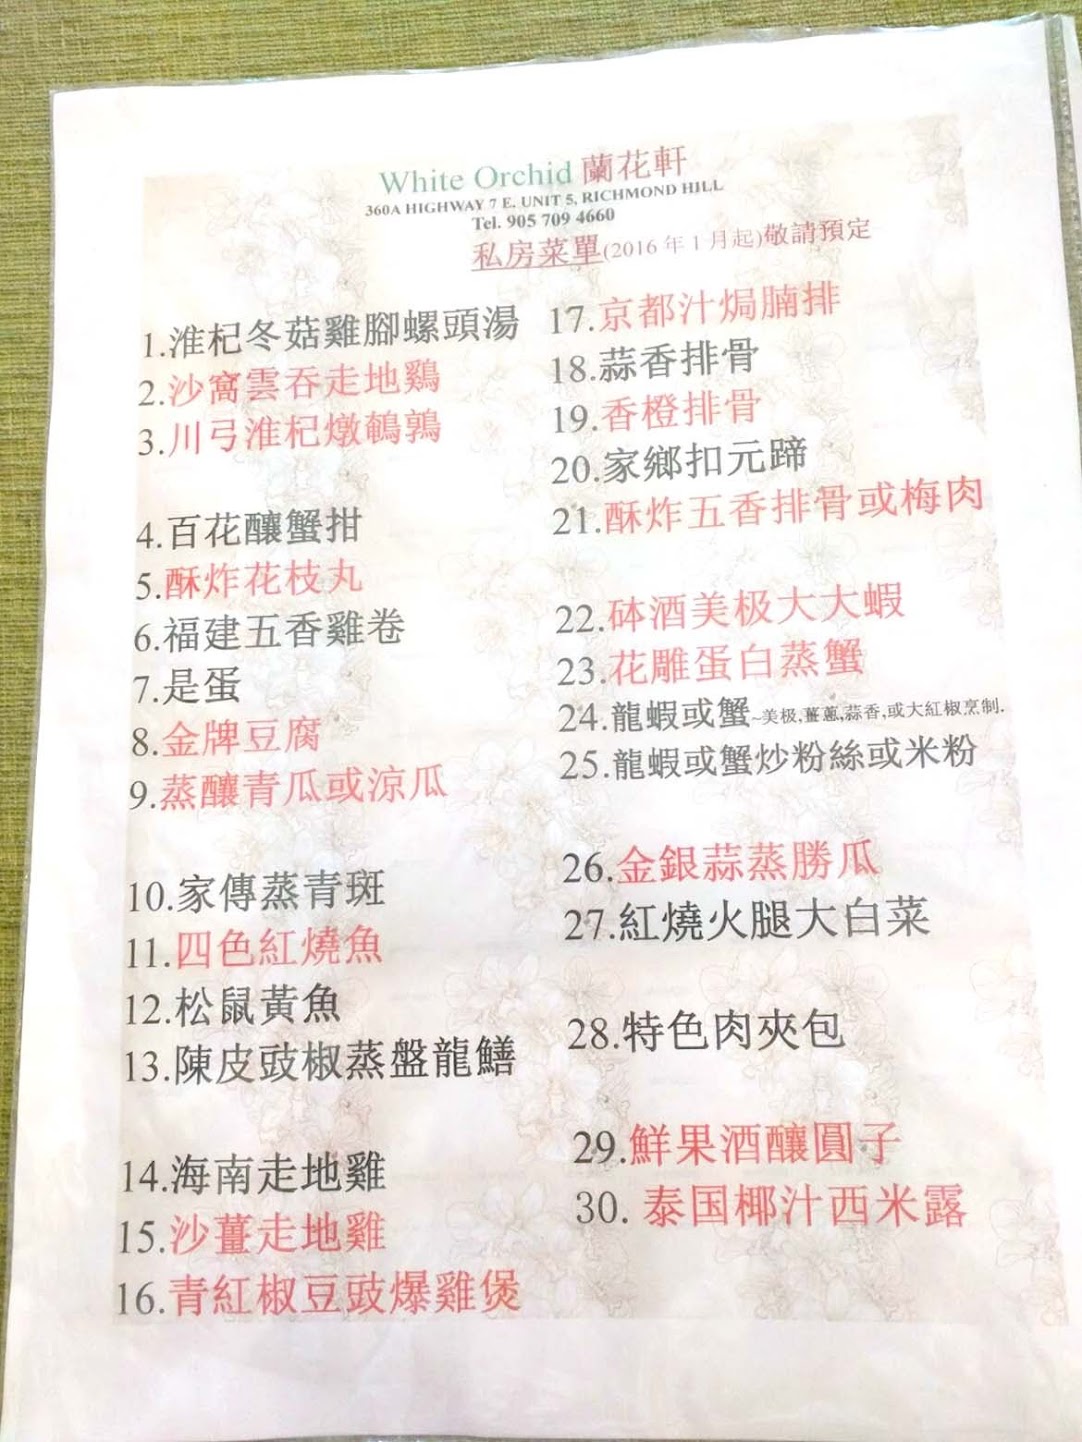 White Orchid 蘭花軒
360A HIGHWAY 7 E. UNIT 5, RICHMOND HILL
Tel. 905 709 4660
私房菜單(2016年1月起)敬請預定
1.淮杞冬菇雞腳螺頭湯
2.沙窩雲吞走地鷄
3.川弓淮杞燉鵪鶉
4.百花釀蟹拑
5.酥炸花枝丸
6.福建五香雞卷
7.是蛋
8.金牌豆腐
9.蒸釀青瓜或涼瓜
10.家傳蒸青斑
11.四色紅燒魚
12.松鼠黃魚
13.陳皮豉椒蒸盤龍鱔
14.海南走地雞
15.沙薑走地雞
16.青紅椒豆豉爆雞煲
17.京都汁焗腩排
18.蒜香排骨
19.香橙排骨
20.家鄉扣元蹄
21.酥炸五香排骨或梅肉
22.砵酒美极大大蝦
23.花雕蛋白蒸蟹
24.龍蝦或蟹~美极,薑蔥,蒜香,或大紅椒烹制.
25.龍蝦或蟹炒粉絲或米粉
26.金銀蒜蒸勝瓜
27.紅燒火腿大白菜
28.特色肉夾包
29.鮮果酒釀圓子
30. 泰国椰汁西米露